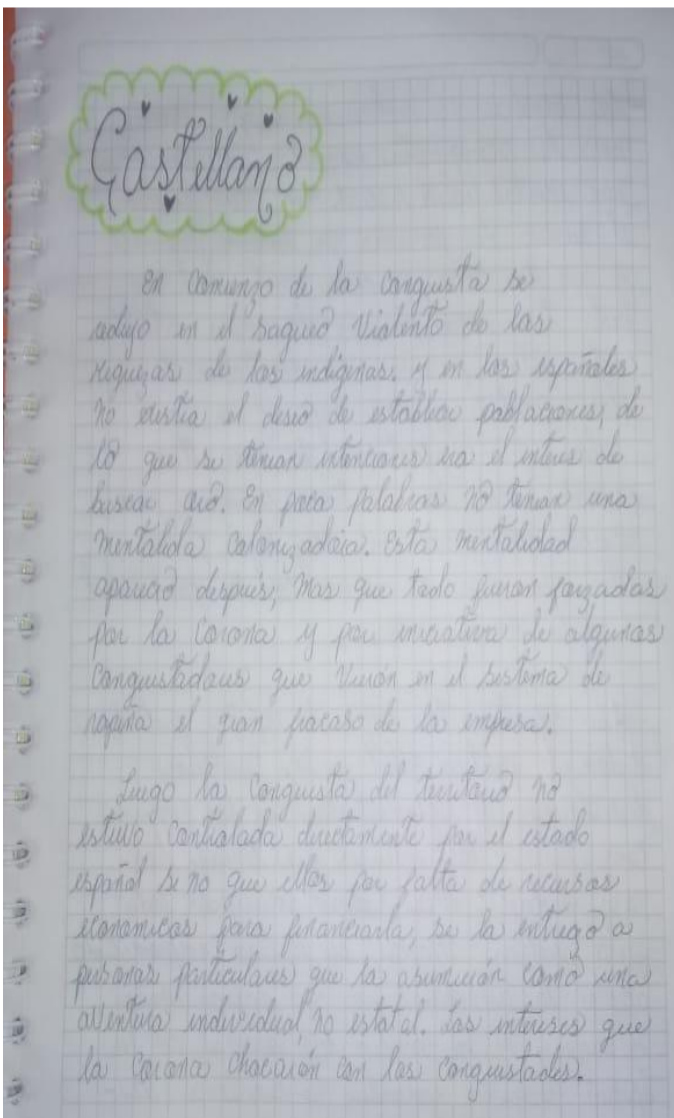 Castellano
En Comienzo de la Conquista se
redujo en el Saqueo Violento de las
riquezas de los indígenas. y en los españoles
no existia el deseo de establecer poblaciones, de
lo que se tenian intenciones era el interes de
buscar oro. En poca palabras no tenian una
mentalida Colonizadora. Esta mentalidad
aparecio después, Mas que todo fueron forzadas
por la Corona y por iniciativa de algunos
Conquistadores que Vierón en el sistema de
rapiña el gran fracaso de la empresa.
Luego la Conquista del territorio no
estuvo Controlada directamente por el estado
español si no que ellos por falta de recursos
economicos para financiarla, se la entrego a
personas particulares que la asumieron como una
aventura individual, no estatal. Los intereses que
la Corona Chocarón con los Conquistades.